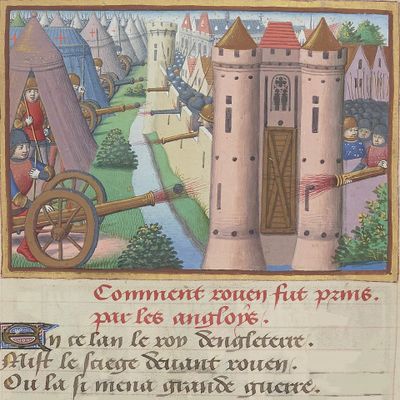 Comment rouen fut prins.
par les angloys.
En ce lan le roy dengleterre.
Mist le siege devant rouen.
Ou la si mena grande guerre.